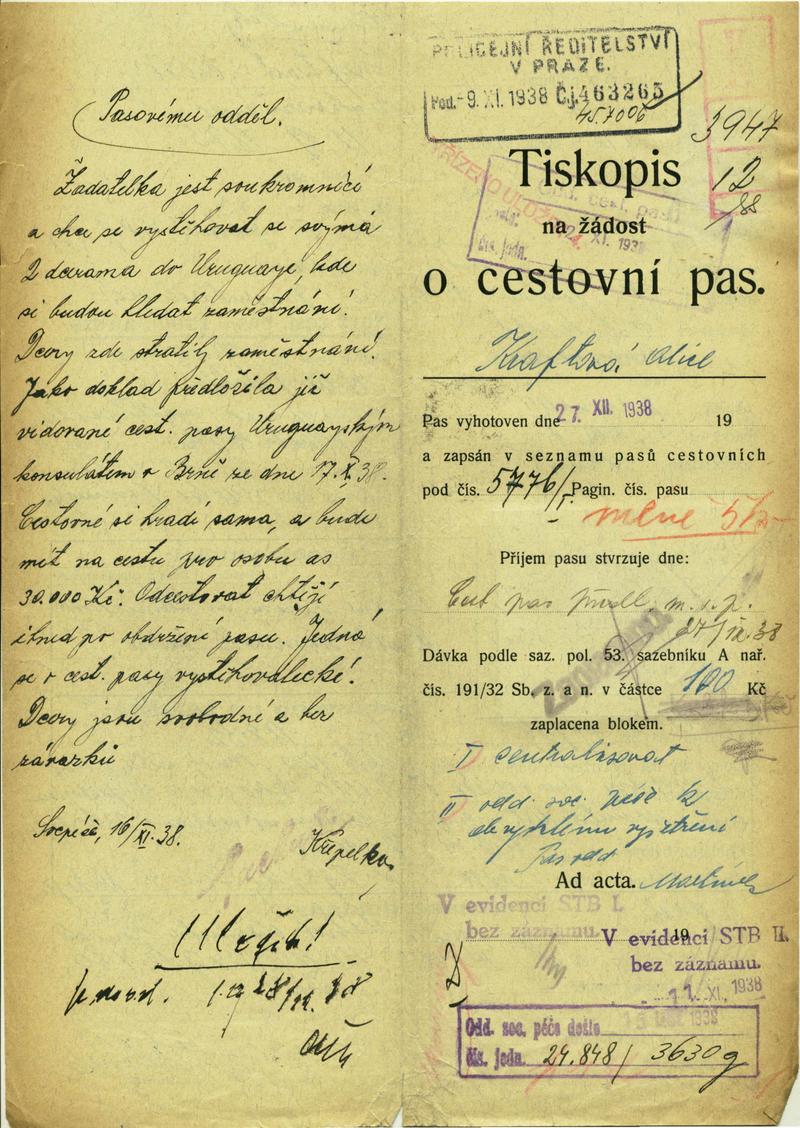 Pasovému odděl.
Žadatelka jest soukromnicí
a chce se vystěhovat se svýmá
2 dcerama do Uruguaye, kde
si budou hledat zaměstnání.
Dcery zde stratily zaměstnání.
Jako doklad předložila již
vidované cest. pasy Uruguayským
konsulátem v Brně ze dne 17.X.38.
Cestovné si hradí sama, a bude
mít na cestu pro osobu as
30.000 Kč. Odcestovat chtějí
ihned po obdržení pasu. Jedná
se o cest. pasy vystěhovalecké.
Dcery jsou svobodné a bez
závazků
16/XI.38.
Křepelka
POLICEJNÍ ŘEDITELSTVÍ
V PRAZE.
Pod. -9. XI. 1938 Čj. 463265
457006
3947
12
88
Tiskopis
na žádost
o cestovní pas.
Kraftová Alice
Pas vyhotoven dne 27. XII. 1938 19
a zapsán v seznamu pasů cestovních
pod čís. 5776/I Pagin. čís. pasu
Příjem pasu stvrzuje dne:
Dávka podle saz. pol. 53. sazebníku A nař.
čís. 191/32 Sb. z. a n. v částce 100 Kč
zaplacena blokem.
I centralisovat
II odd. soc. péče k
obvyklému vyšetření
Pas. odd.
Ad acta.
V evidenci STB I.
bez záznamu.
19
V evidenci STB II.
bez záznamu.
11. XI. 1938
Odd. soc. péče došlo
čís. jedn. 24.848/ 3630g